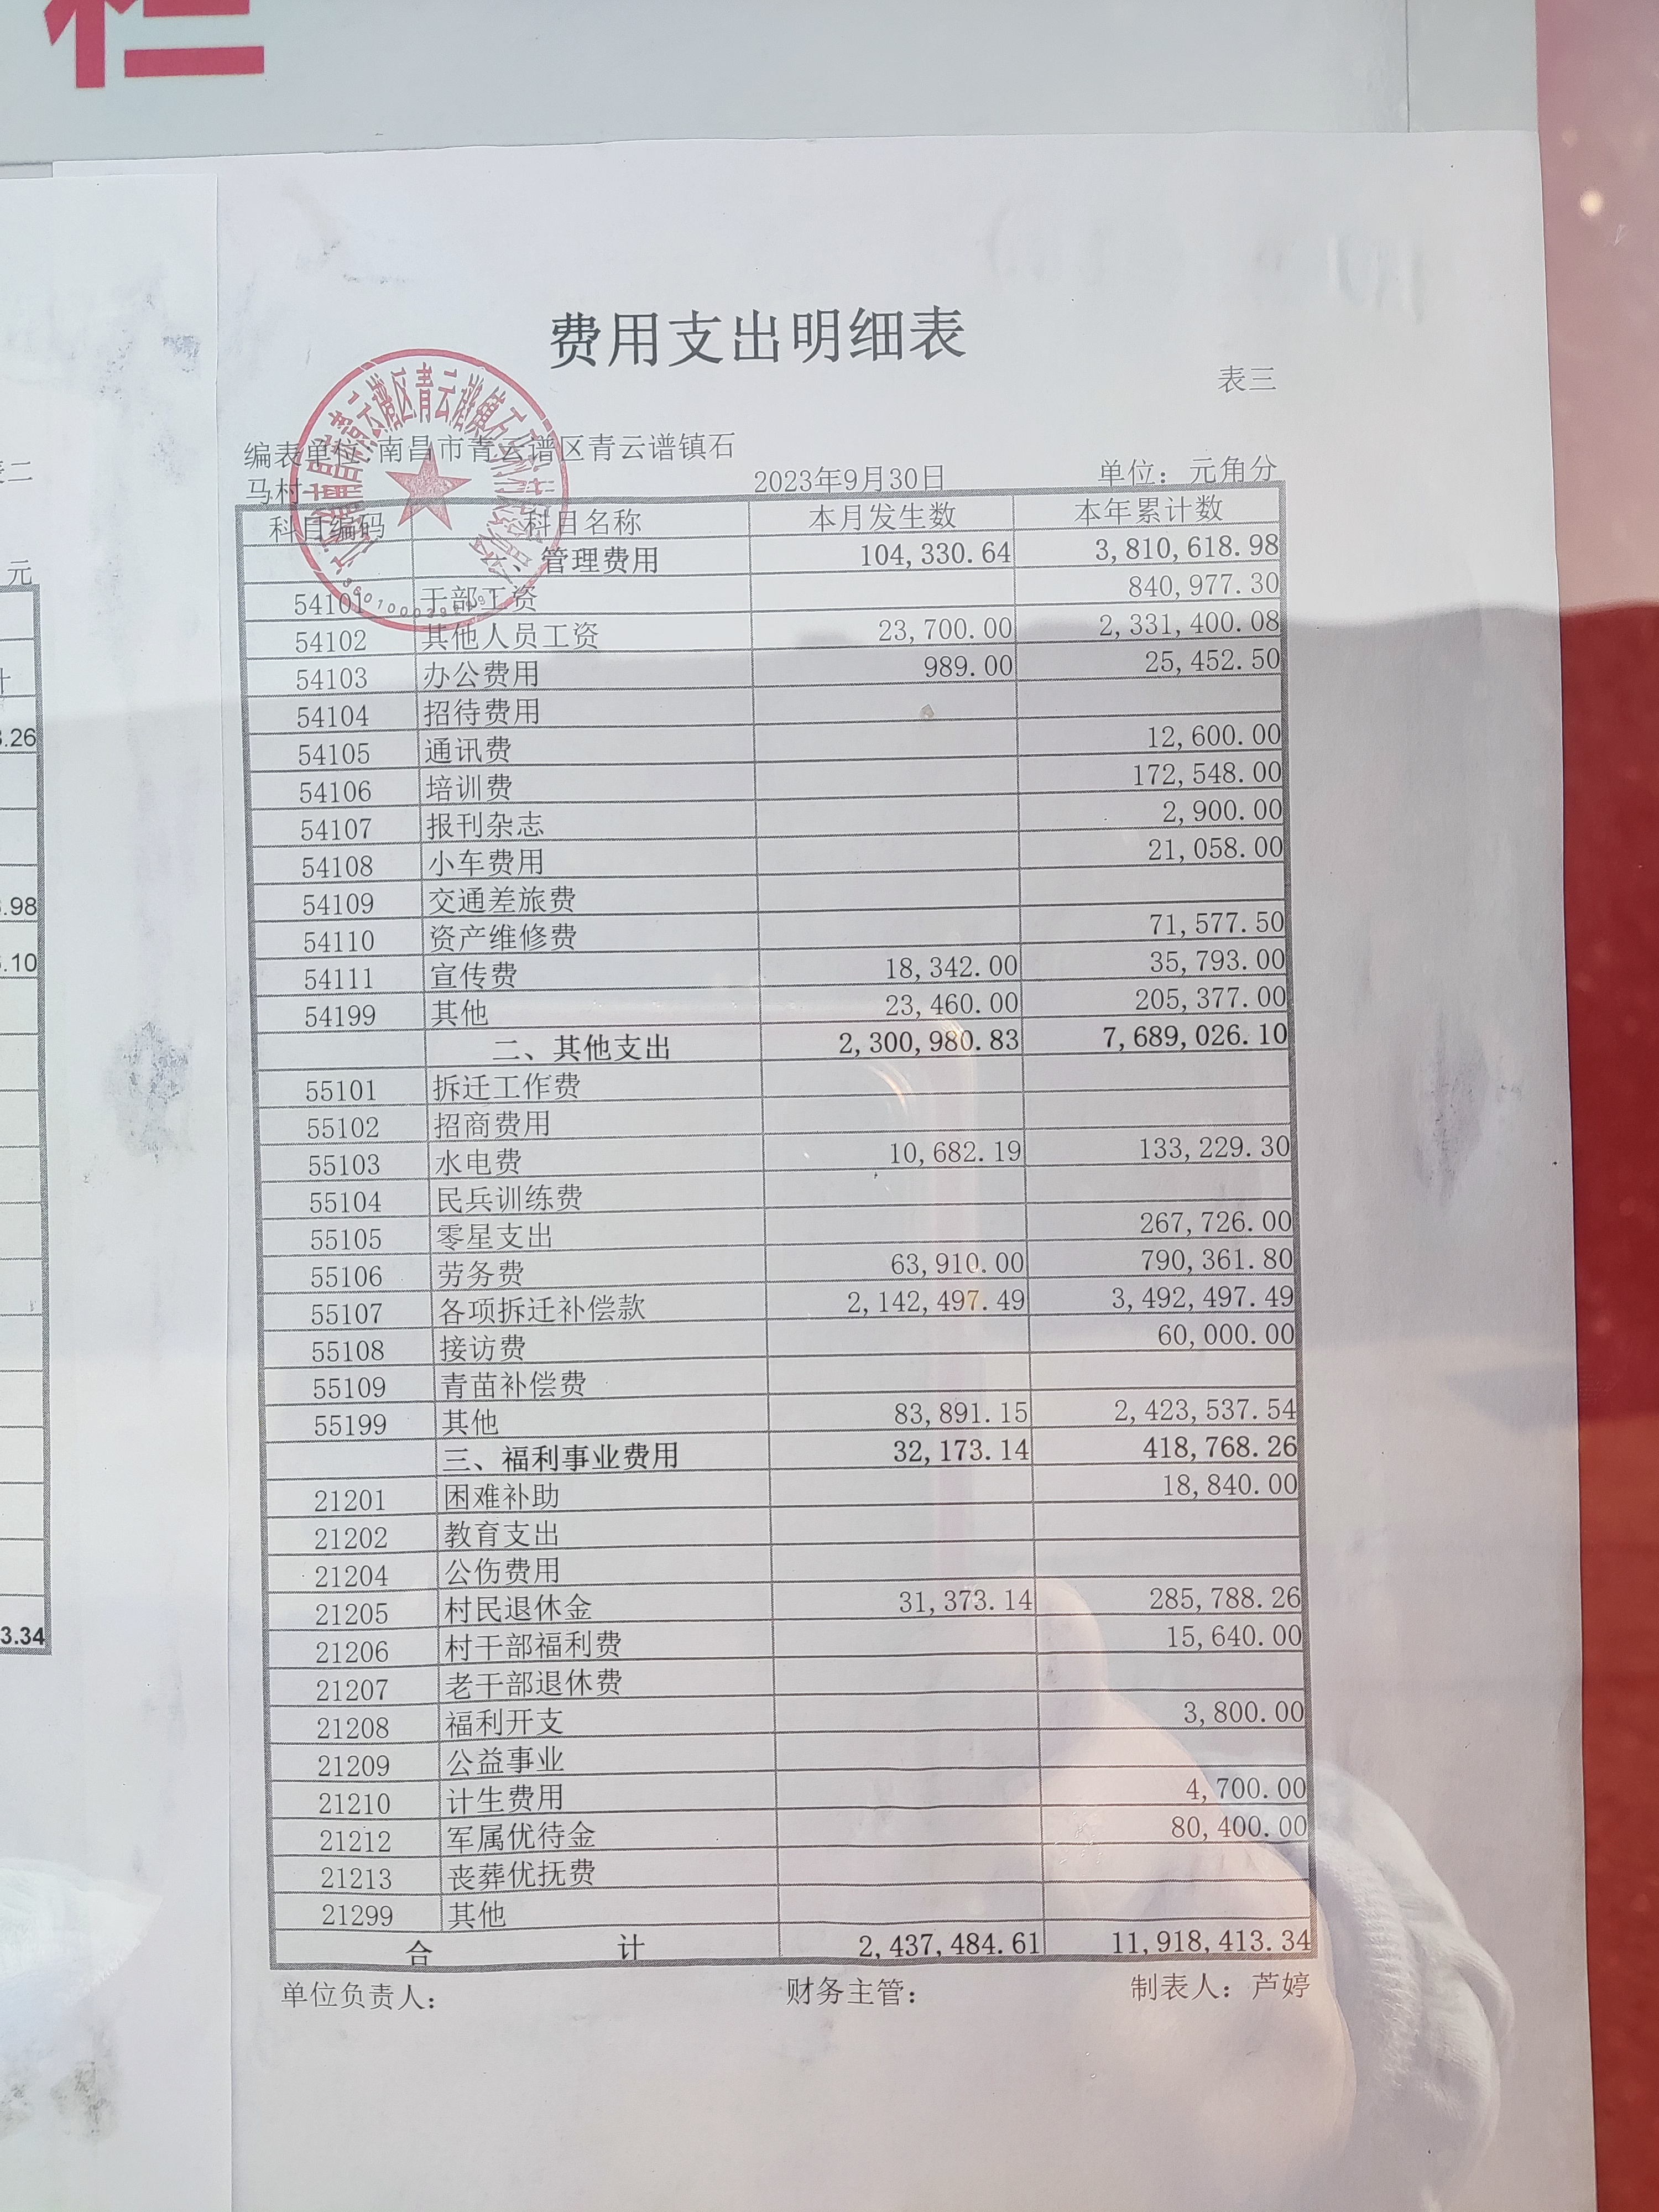 栏
费用支出明细表
表三
编表单位 南昌市青云谱区青云谱镇石
马村
2023年9月30日
单位：元角分
科目编码 科目名称 本月发生数 本年累计数
管理费用 104,330.64 3,810,618.98
54101 干部工资 840,977.30
54102 其他人员工资 23,700.00 2,331,400.08
54103 办公费用 989.00 25,452.50
54104 招待费用
54105 通讯费 12,600.00
54106 培训费 172,548.00
54107 报刊杂志 2,900.00
54108 小车费用 21,058.00
54109 交通差旅费
54110 资产维修费 71,577.50
54111 宣传费 18,342.00 35,793.00
54199 其他 23,460.00 205,377.00
二、其他支出 2,300,980.83 7,689,026.10
55101 拆迁工作费
55102 招商费用
55103 水电费 10,682.19 133,229.30
55104 民兵训练费
55105 零星支出 267,726.00
55106 劳务费 63,910.00 790,361.80
55107 各项拆迁补偿款 2,142,497.49 3,492,497.49
55108 接访费 60,000.00
55109 青苗补偿费
55199 其他 83,891.15 2,423,537.54
三、福利事业费用 32,173.14 418,768.26
21201 困难补助 18,840.00
21202 教育支出
21204 公伤费用
21205 村民退休金 31,373.14 285,788.26
21206 村干部福利费 15,640.00
21207 老干部退休费
21208 福利开支 3,800.00
21209 公益事业
21210 计生费用 4,700.00
21212 军属优待金 80,400.00
21213 丧葬优抚费
21299 其他
合 计 2,437,484.61 11,918,413.34
单位负责人： 财务主管： 制表人：芦婷
表二
元
计
.26
.98
.10
3.34